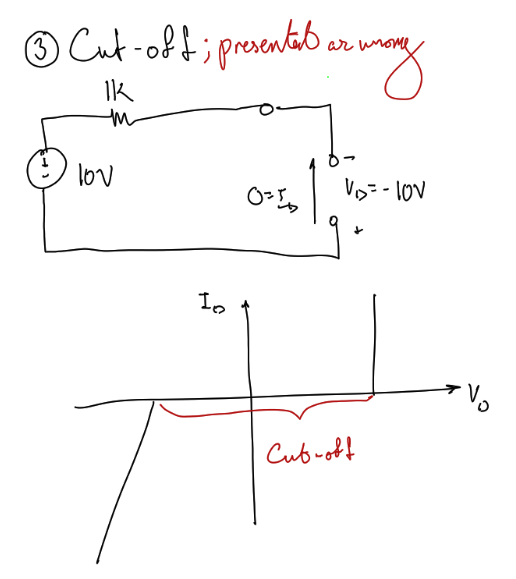 ③ Cut-off; presented as wrong
1K
+
-
10V
-
0=I_D
V_D=-10V
+
I_D
V_D
Cut-off